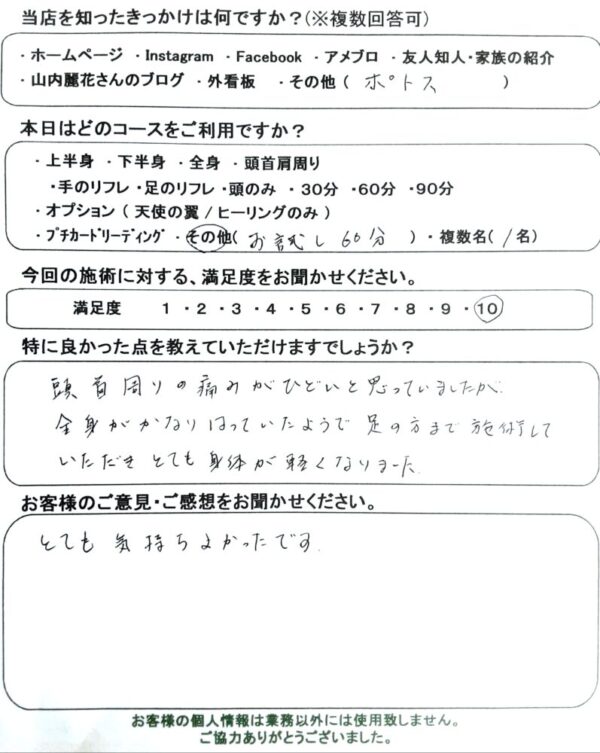 当店を知ったきっかけは何ですか?(※複数回答可)
・ホームページ ・Instagram ・Facebook ・アメブロ ・友人知人・家族の紹介
・山内麗花さんのブログ ・外看板 ・その他(ポトス)
本日はどのコースをご利用ですか?
・上半身 ・下半身 ・全身 ・頭首肩周り
・手のリフレ ・足のリフレ ・頭のみ ・30分 ・60分 ・90分
・オプション(天使の翼/ヒーリングのみ)
・プチカードリーディング ・その他(お試し60分)・複数名(1名)
今回の施術に対する、満足度をお聞かせください。
満足度 1・2・3・4・5・6・7・8・9・10
特に良かった点を教えていただけますでしょうか?
頭首周りの痛みがひどいと思っていましたが、
全身がかなりはっていたようで足の方まで施術して
いただきとても身体が軽くなりました。
お客様のご意見・ご感想をお聞かせください。
とても気持ちよかったです。
お客様の個人情報は業務以外には使用致しません。
ご協力ありがとうございました。